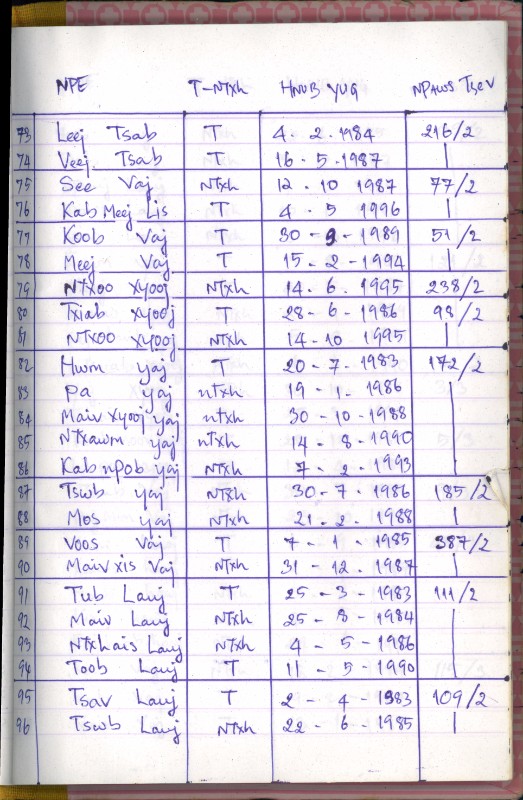 NPE T-NTxh HNUB YUG NPAWS TSEV
73 Leej Tsab T 4. 2. 1984 216/2
74 Veej Tsab T 16. 5. 1987 |
75 See Vaj NTxh 12. 10 1987 77/2
76 Kab Meej Lis T 4. 5 1996 |
77 Koob Vaj T 30 - 9 - 1989 51/2
78 Meej Vaj T 15. 2 - 1994 |
79 NTXOO XYOOJ NTxh 14. 6. 1995 238/2
80 Txiab XYOOJ T 28 - 6 - 1986 98/2
81 NTXOO XYOOJ NTxh 14-10 1995 |
82 Hwm yaj T 20 - 7. 1983 172/2
83 Pa yaj ntxh 19 . 1. 1986
84 Maiv Xyooj yaj ntxh 30 - 10 - 1988
85 NTxawm yaj ntxh 14 - 8 - 1990
86 Kab npob yaj NTxh 7 - 2 - 1993
87 Tswb yaj NTxh 30 - 7 - 1986 185/2
88 Mos yaj NTxh 21. 2. 1988 |
89 Voos Vaj T 7 - 1 - 1985 387/2
90 Maiv xis Vaj NTxh 31 - 12. 1987 |
91 Tub Lauj T 25 - 3 - 1983 111/2
92 Maiv Lauj NTxh 25 - 8 - 1984
93 NTxhais Lauj NTxh 4 - 5 - 1986
94 Toob Lauj T 11 - 5 - 1990
95 Tsav Lauj T 2 - 4 - 1983 109/2
96 Tswb Lauj NTxh 22 - 6 - 1985 |